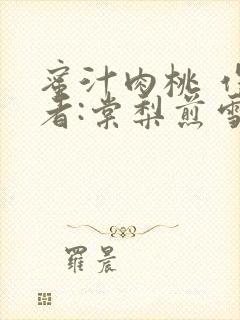 蜜汁肉桃 作
者:棠梨煎雪
羅晨